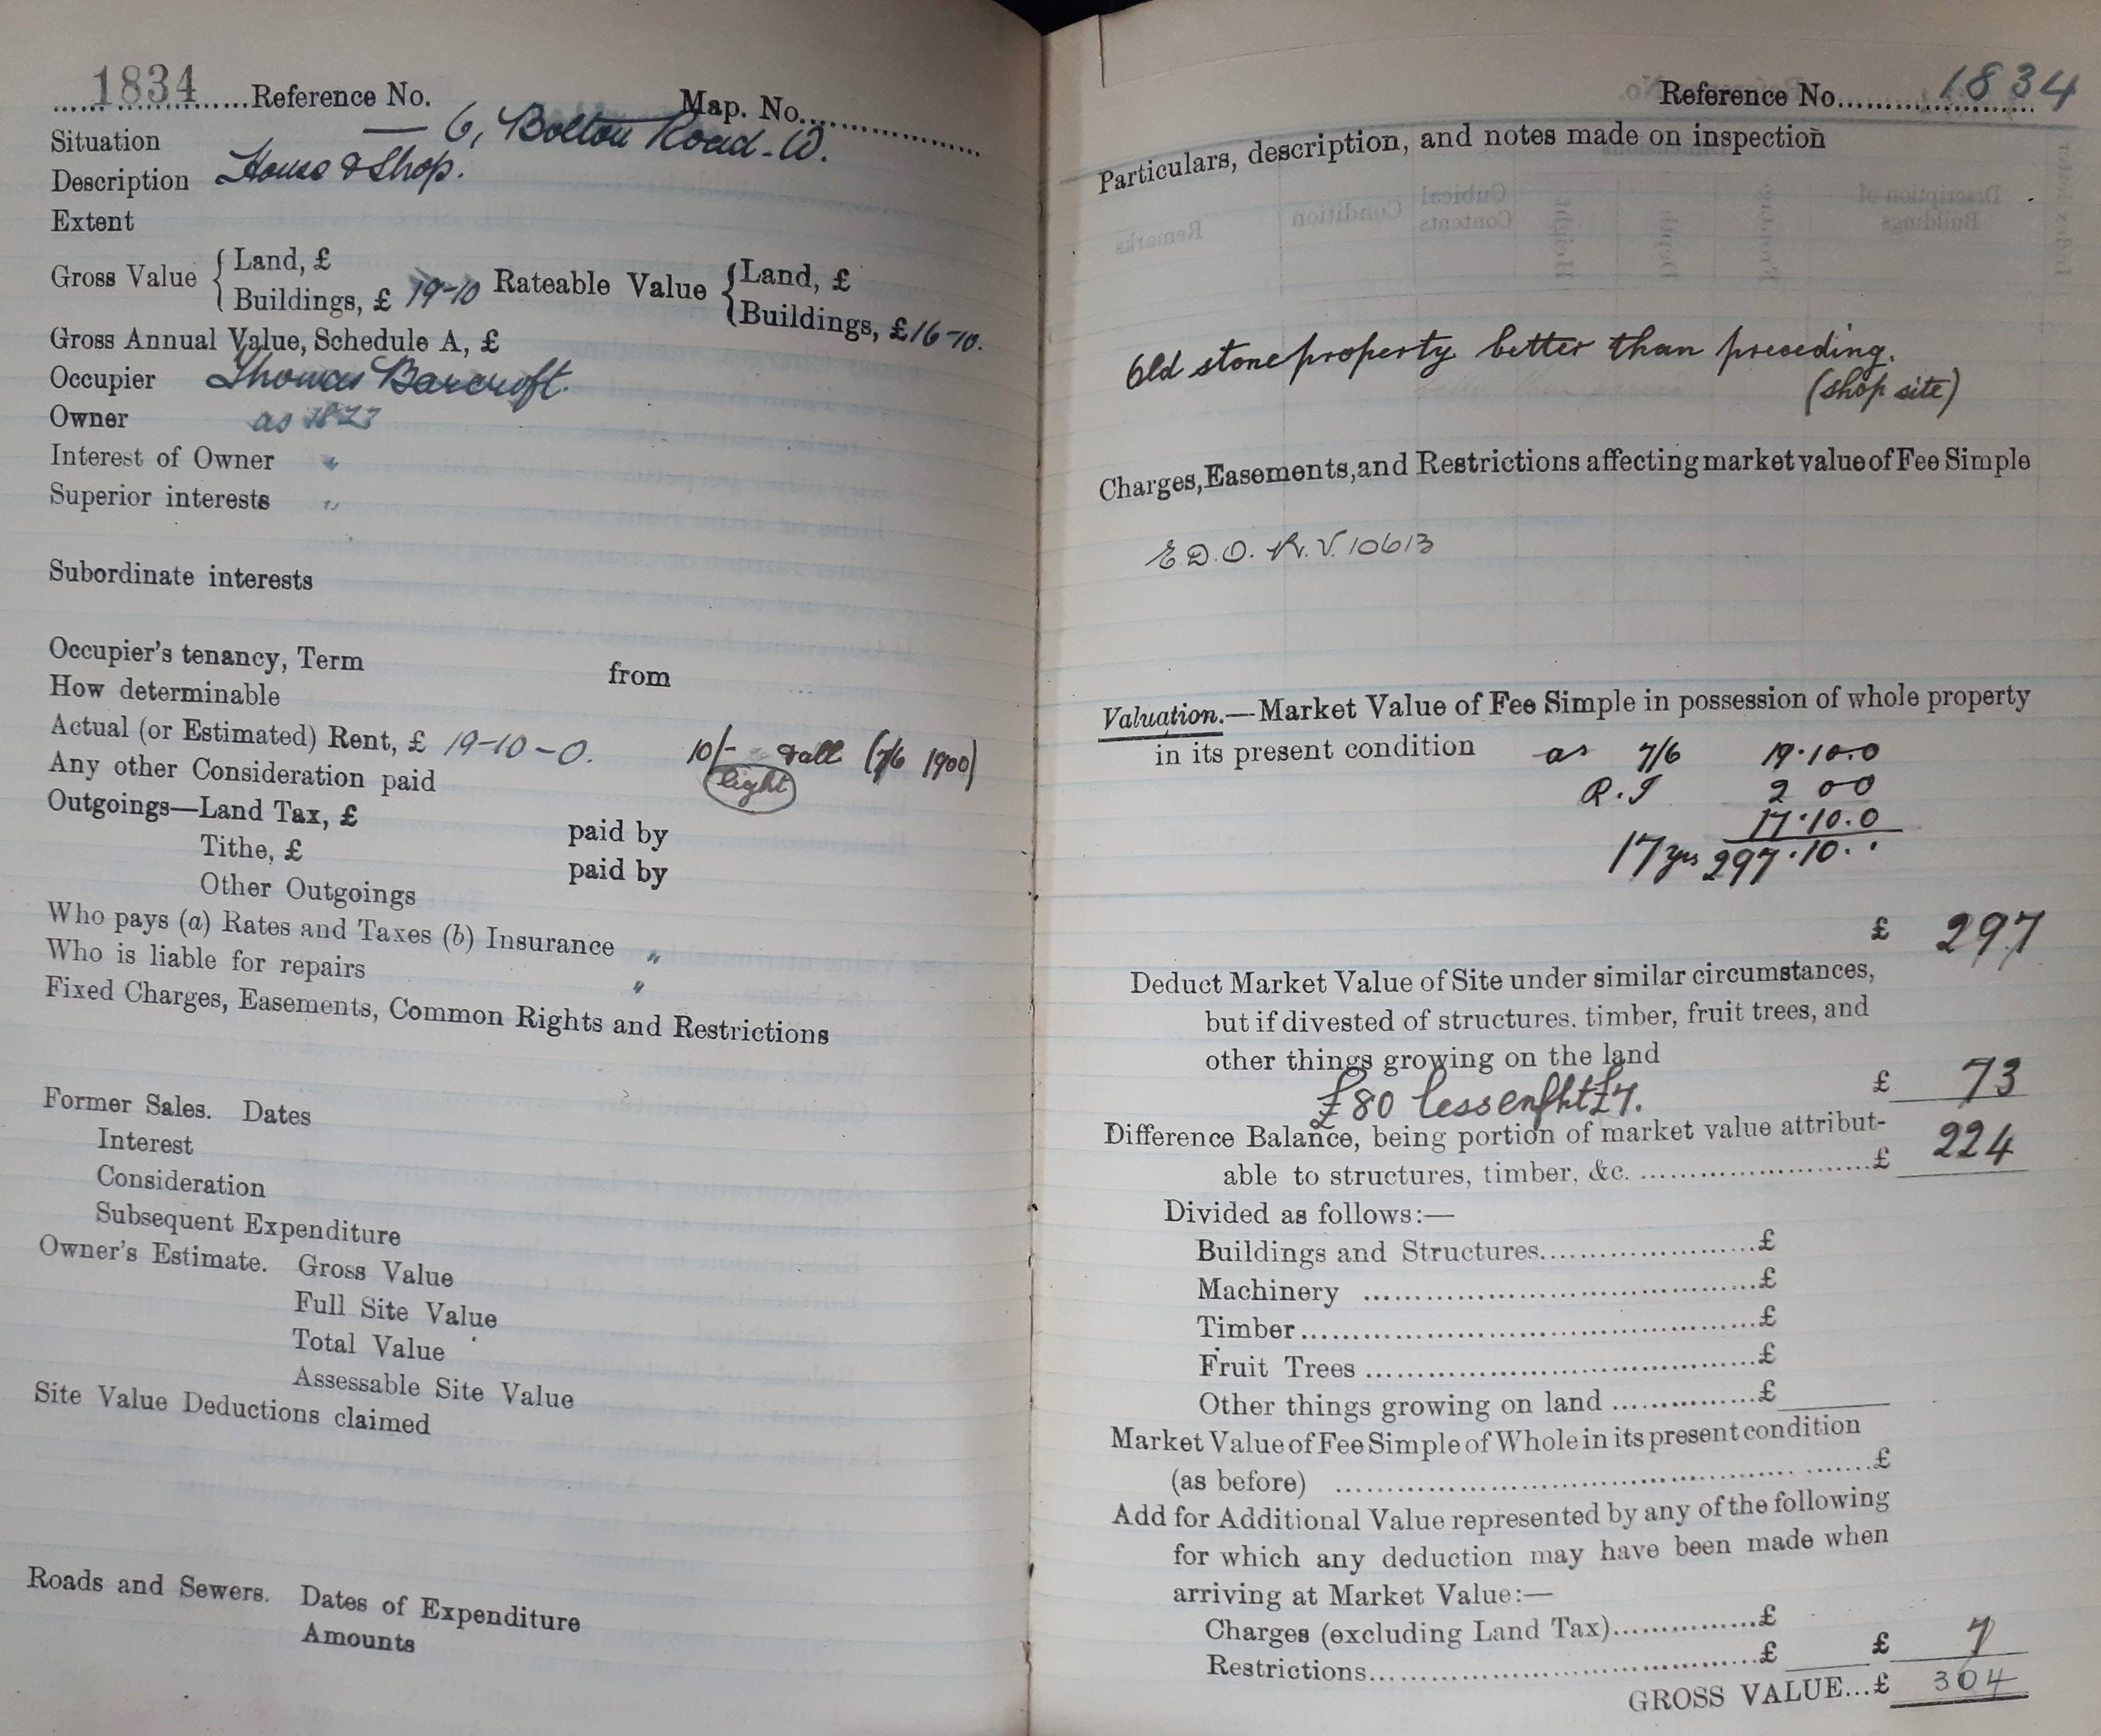 1834 Reference No. Map. No.
Situation — 6, Bolton Road - W.
Description House & Shop.
Extent
Gross Value { Land, £ Rateable Value { Land, £
Buildings, £ 19-10 Buildings, £ 16-10.
Gross Annual Value, Schedule A, £
Occupier Thomas Barcroft.
Owner as 1827
Interest of Owner "
Superior interests "
Subordinate interests
Occupier's tenancy, Term from
How determinable
Actual (or Estimated) Rent, £ 19-10-0. 10/- & all (7/6 1900)
Any other Consideration paid light
Outgoings—Land Tax, £ paid by
Tithe, £ paid by
Other Outgoings
Who pays (a) Rates and Taxes (b) Insurance "
Who is liable for repairs "
Fixed Charges, Easements, Common Rights and Restrictions
Former Sales. Dates
Interest
Consideration
Subsequent Expenditure
Owner's Estimate. Gross Value
Full Site Value
Total Value
Assessable Site Value
Site Value Deductions claimed
Roads and Sewers. Dates of Expenditure
Amounts
Reference No. 1834
Particulars, description, and notes made on inspection
Old stone property better than preceding.
(shop site)
Charges, Easements, and Restrictions affecting market value of Fee Simple
E.D.O. R.V. 10613
Valuation.—Market Value of Fee Simple in possession of whole property
in its present condition as 7/6 19.10.0
R.T 2 0 0
17.10.0
17 yrs 297.10..
£ 297
Deduct Market Value of Site under similar circumstances,
but if divested of structures. timber, fruit trees, and
other things growing on the land
£80 less enfht £7. £ 73
Difference Balance, being portion of market value attribut-
able to structures, timber, &c. £ 224
Divided as follows:—
Buildings and Structures £
Machinery £
Timber £
Fruit Trees £
Other things growing on land £
Market Value of Fee Simple of Whole in its present condition
(as before) £
Add for Additional Value represented by any of the following
for which any deduction may have been made when
arriving at Market Value:—
Charges (excluding Land Tax) £
Restrictions £ £ 7
GROSS VALUE...£ 304